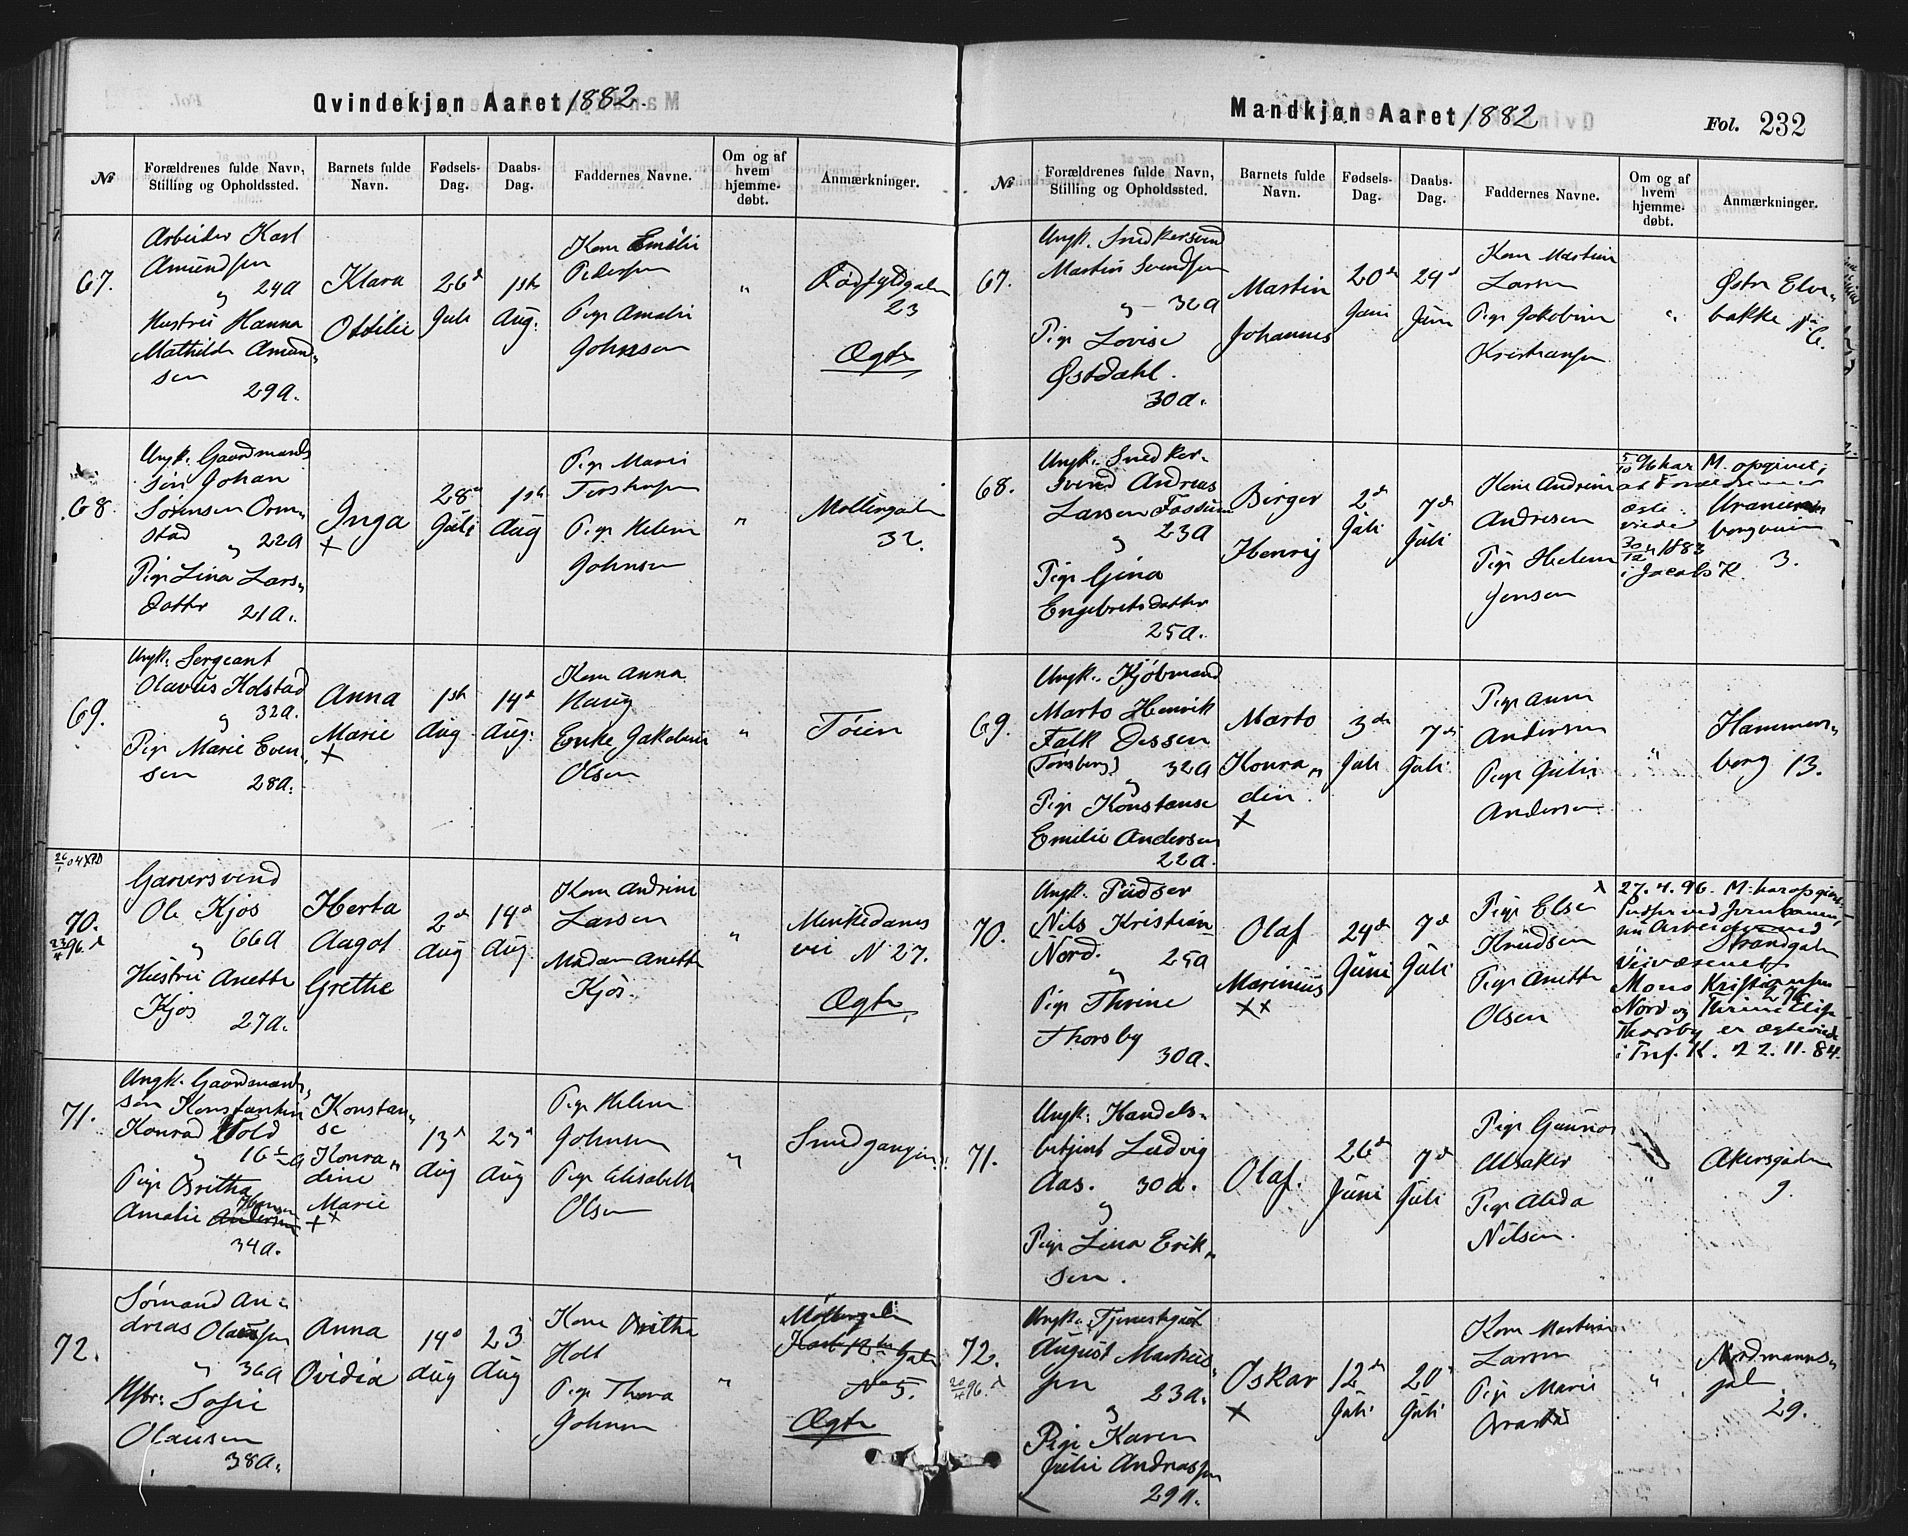 Qvindekjøn Aaret 1882.
№
Forældrenes fulde Navn,
Stilling og Opholdssted.
Barnets fulde
Navn.
Fødsels-
Dag.
Daabs-
Dag.
Faddernes Navne.
Om og af
hvem
hjemme-
døbt.
Anmærkninger.
67.
Arbeider Karl
Amundsen
" 24 A
Hustru Hanna
Mathilde Amund„
sen
29 A.
Klara
Ottilie
26d
Juli
1ste
Aug.
Kone Emilie
Pedersen
Pige Amalie
Johnsen
"
23
Ægte
68.
Ungk. Gaardmands
søn Johan
Sørensen Orm„
stad
" 22 A
Pige Lina Lars„
datter 21 A.
Inga
+
28de
Juli
1ste
Aug
Pige Marie
Pige Helene
Johnsen
"
Møllergaden
32.
69.
Ungk. Sergeant
Olavus Holstad
" 32 A.
Pige Marie Even„
sen 28 A.
Anna
Marie
+
1ste
Aug
14d
Aug.
Kone Anna
Haug
Enke Jakobine
Olsen
"
Tøien
70.
23/4 96.
Garversvend
Ole Kjos
" 66 A
Hustru Anette
Kjos 27 A.
Herta
Aagot
Grethe
2d
Aug
14d
Aug.
Kone Andrine
Larsen
Madam Anette
Kjos.
"
Munkedams
vei N 27.
Ægte
71.
Ungk. Gaardmands„
søn Konstantin
Konrad Vold
" 16 A
Pige Oritha
Amalie Hansen
Andersen
34 A.
Konstan„
se
Konra„
dine
Marie
++
13d
Aug
23d
Aug
Pige Helene
Johnsen
Pige Elisabeth
Olsen
"
Smedgangen
72.
Sømand An„
dreas Olausen
" 36 A
Hstr. Sofie
Olausen
38 A.
Anna
Ovidia
14d
Aug
23
Aug
Kone Oritha
Holt
Pige Thora
Johnsen
"
Møllergaden
No 5.
Ægte
Mandkjøn Aaret 1882
Fol. 232
№
Forældrenes fulde Navn,
Stilling og Opholdssted.
Barnets fulde
Navn.
Fødsels-
Dag.
Daabs-
Dag.
Faddernes Navne.
Om og af
hvem
hjemme-
døbt.
Anmærkninger.
67.
Ungk. Snedkersvend
Martin Svendsen
" 32 A
Pige Lovise
Østdahl.
30 A.
Martin
Johannes
20de
Juni
24d
Juni
Kone Martine
Larsen
Pige Jakobine
Kristiansen
"
Østre Elve„
bakke No
6.
68.
Ungk. Snedker„
svend Andreas
Larsen Fossum
" 23 A
Pige Gina
Engebretsdatter
25 A.
Birger
Henrij
2d
Juli
7de
Juli
Kone Andrine
Andresen
Pige Helene
Jensen
5/10 96 har M. opgivet,
at Forældrene er
ægte
viede
30/12 1883
i Jacobs K.
Uranien
borgveien
3.
69.
Ungk. Kjøbmand
Marto Henrik
Falk Dessen
(Tønsberg) 32 A
"
Pige Konstanse
Emilie Andersen
22 A.
Marto
Konra„
din.
+
3de
Juli
7de
Juli
Pige Anna
Andersen
Pige Julie
Andersen
"
Hammers„
borg 13.
70.
Ungk. Pudser
Nils Kristian
Nord. 25 A
"
Pige Thrine
Thorsby
30 A.
Olaf
Marinius
++
24de
Juni
7d
Juli
Pige Elsa
Knudsen
Pige Anette
Olsen
27.4.96. M. har opgivet
Pudser ved Jernbanen,
nu Arbeider ved
Veivæsenet
Strandgaden
27b
Mons Kristiansen
Nord og Thrine Elise
Thorsby er ægteviede
i Tref. K. 22.11.84.
71.
Ungk. Handels„
betjent Ludvig
Aas. 30 A.
"
Pige Lina Erik„
sen.
Olaf.
26de
Juni
7d
Juli
Pige Gunnor
Ulsaker
Pige Alida
Nilsen.
"
Akersgaden
9.
72.
20/4 96.
Ungk. Tjenestgut
August Markus„
sen 23 A.
"
Pige Karen
Julie Andreassen
29 A.
Oskar
+
12de
Juli
20d
Juli
Kone Martine
Larsen
Pige Marie
"
Nordmanns„
gal
29.